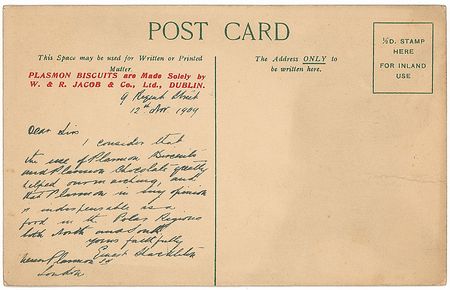 POST CARD
This Space may be used for Written or Printed
Matter.
PLASMON BISCUITS are Made Solely by
W. & R. JACOB & Co., Ltd., DUBLIN.
The Address ONLY to
be written here.
½D. STAMP
HERE
FOR INLAND
USE
9 Regent Street
12th Nov. 1909
Dear Sirs
I consider that
the use of Plasmon Biscuits
and Plasmon Chocolate greatly
helped our marching, and
that Plasmon in my opinion
is indispensable as a
food in the Polar Regions
both North and South
Yours faithfully
Ernest Shackleton
Plasmon Ld
London